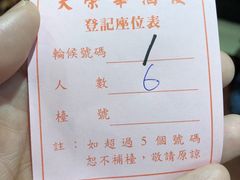 大榮華酒樓
登記座位表
輪候號碼 1
人數 6
檯號
註：如超過5個號碼
恕不補檯，敬請原諒